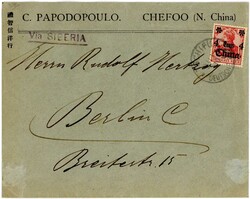 C. PAPODOPOULO. CHEFOO (N. China)
Via SIBERIA
Herrn Rudolf Hertzog
Berlin C
Breitestr. 15
China